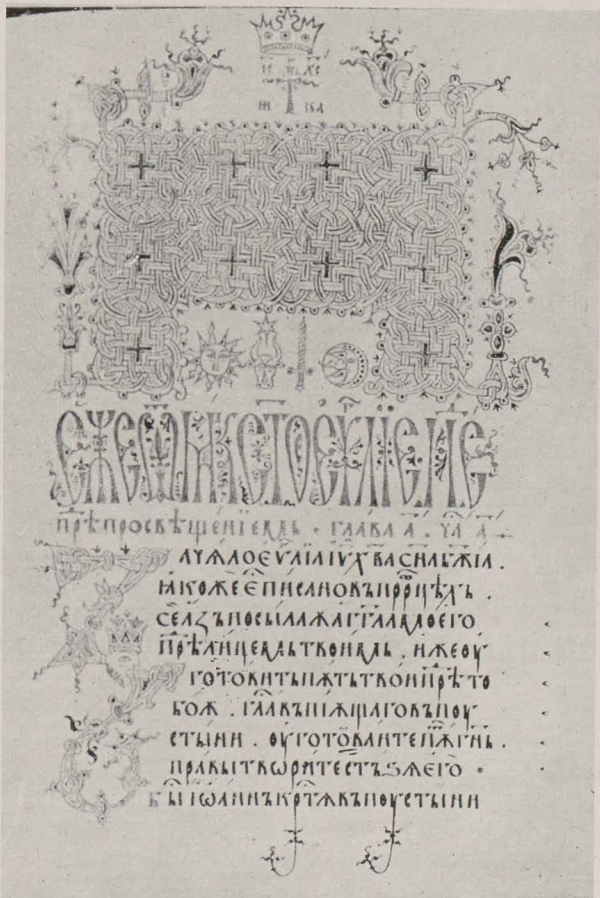 іс҃ х҃с
ни ка
еже ѿ марка ст҃ое еѵⷢ҇лїе неⷣ҇
прѣⷣ просвѣщенїемь · глава а҃ ·
ꙁачѧло еѵⷢ҇лїа іѵ҃ х҃ва сн҃а бж҃іа .
ꙗкоже е҆ писано въ прⷪ҇рцѣхъ .
се азъ посылаѫ агг҃ла моего
прѣⷣ лицемь твоимь . иже оу
готовить пѫть твои прѣⷣ то
боѫ . гла҃ въпіѫщаго въ поу
стыни . оуготоваите пѫⷮ гн҃ь .
правы творите стъѕѫ его ·
бы҃ іѡаннъ крⷭ҇тѧ въ поустыни